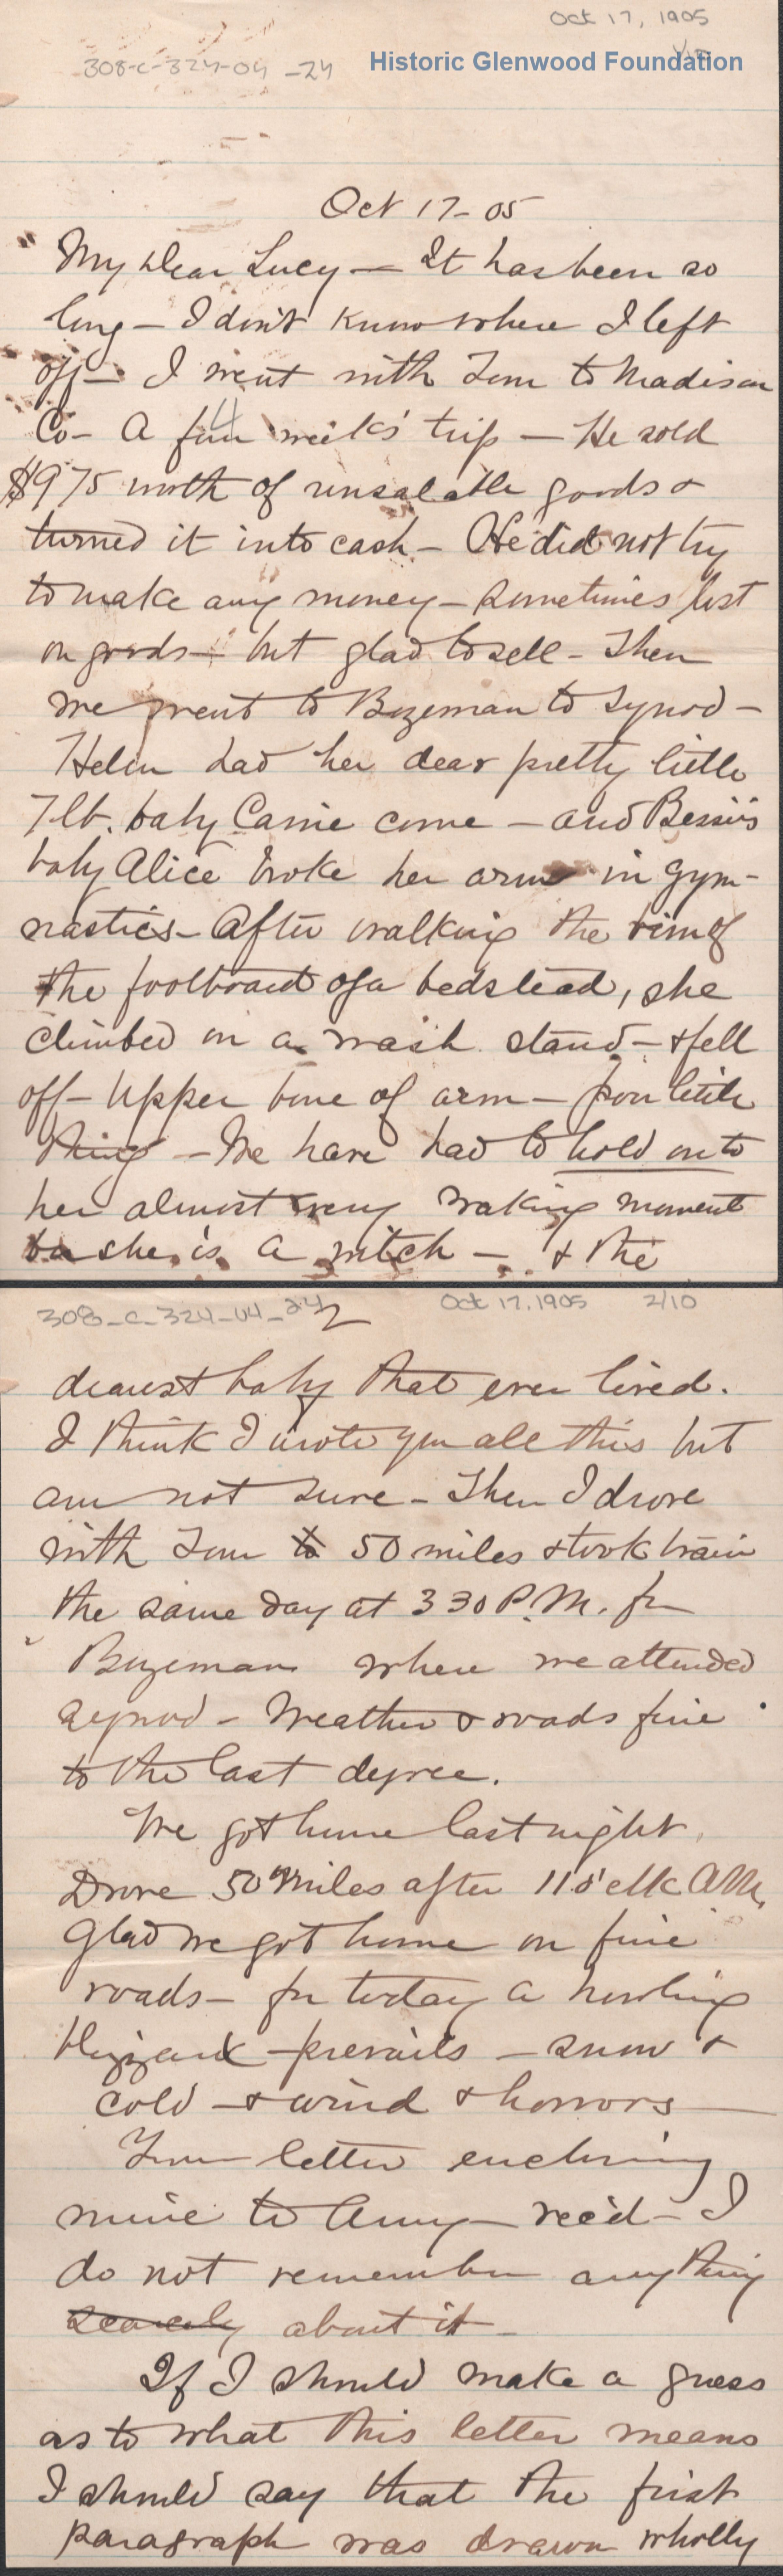 Oct 17, 1905
308-C-324-04-24
Historic Glenwood Foundation
Oct 17- 05
My Dear Lucy — It has been so
long — I don't know where I left
off — I went with Tom to Madison
Co — A four weeks' trip — He sold
$975 worth of unsalable goods &
turned it into cash — He did not try
to make any money — sometimes lost
on goods — but glad to sell — Then
we went to Bozeman to Synod —
Helen had her dear pretty little
7 lb. baby Carrie come — and Bessie's
baby Alice broke her arm in gym-
nastics — After walking the rim of
the footboard of a bedstead, she
climbed on a wash stand — & fell
off — Upper bone of arm — poor little
thing — We have had to hold on to
her almost every waking moment
she is a witch — & the
308-C-324-04-24 2 Oct 17, 1905 2/10
dearest baby that ever lived.
I think I wrote you all this but
am not sure — Then I drove
with Tom to 50 miles & took train
the same day at 330 P.M. for
Bozeman where we attended
synod — Weather & roads fine
to the last degree.
We got home last night.
Drove 50 miles after 11 o'clk AM,
Glad we got home on fine
roads — for today a howling
blizzard prevails — snow &
cold — & wind & horrors —
Your letter enclosing
mine to Amy — rec'd — I
do not remember anything
scarcely about it —
If I should make a guess
as to what this letter means
I should say that the first
paragraph was drawn wholly